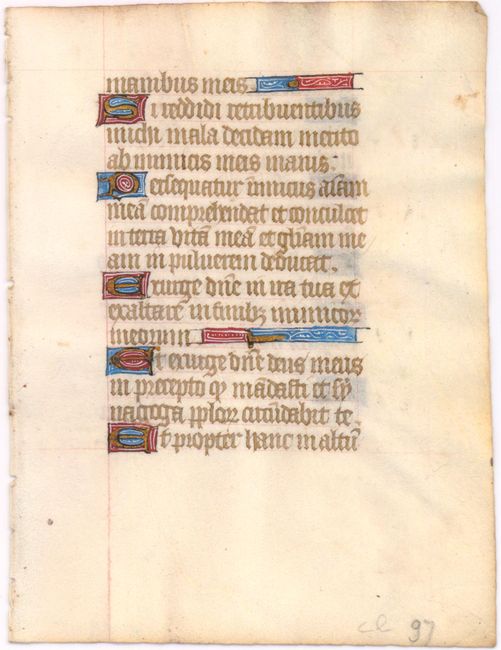 manibus meis
Si reddidi retribuentibus
michi mala decidam merito
ab inimicis meis inanis.
Persequatur inimicus aīam
meā comprehendat et conculcet
in terra vitā meā et gl̄iam me
am in puluerem deducat.
Exurge dn̄e in ira tua et
exaltare in finibꝫ inimicor
meorum
Et exurge dn̄e deus meus
in precepto qđ mādasti et sy
nagoga pp̄lor circūdabit te.
Et propter hanc in altū
cl 97